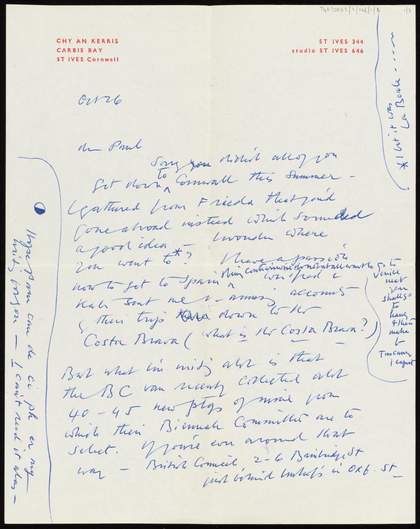 CHY AN KERRIS
CARBIS BAY
ST IVES Cornwall
ST IVES 344
studio ST IVES 646
Oct 26
dear Paul
Sorry you didn't all of you
get down to Cornwall this summer -
I gathered from Frieda that you'd
gone abroad instead which sounded
a good idea - I wonder where
you went to * ? I have a passion
now to get to Spain
Kate sent me amusing accounts
of their trip down to the
Costa Brava (what is the Costa Brava?)
But what I'm writing abt is that
the BC van recently collected abt
40 - 45 new ptgs of mine from
which their Biennale Committee are to
select. If you're ever around that
way - British Council, 2-6 Bainbridge St
just behind in Oxf. St -
* I bet it was
La Baule ......
go to
Venice
next
you
shall
to
have
& then
make
to
Tuscany
I expect
Hope you can de ci ph er my
writing
I can't read it